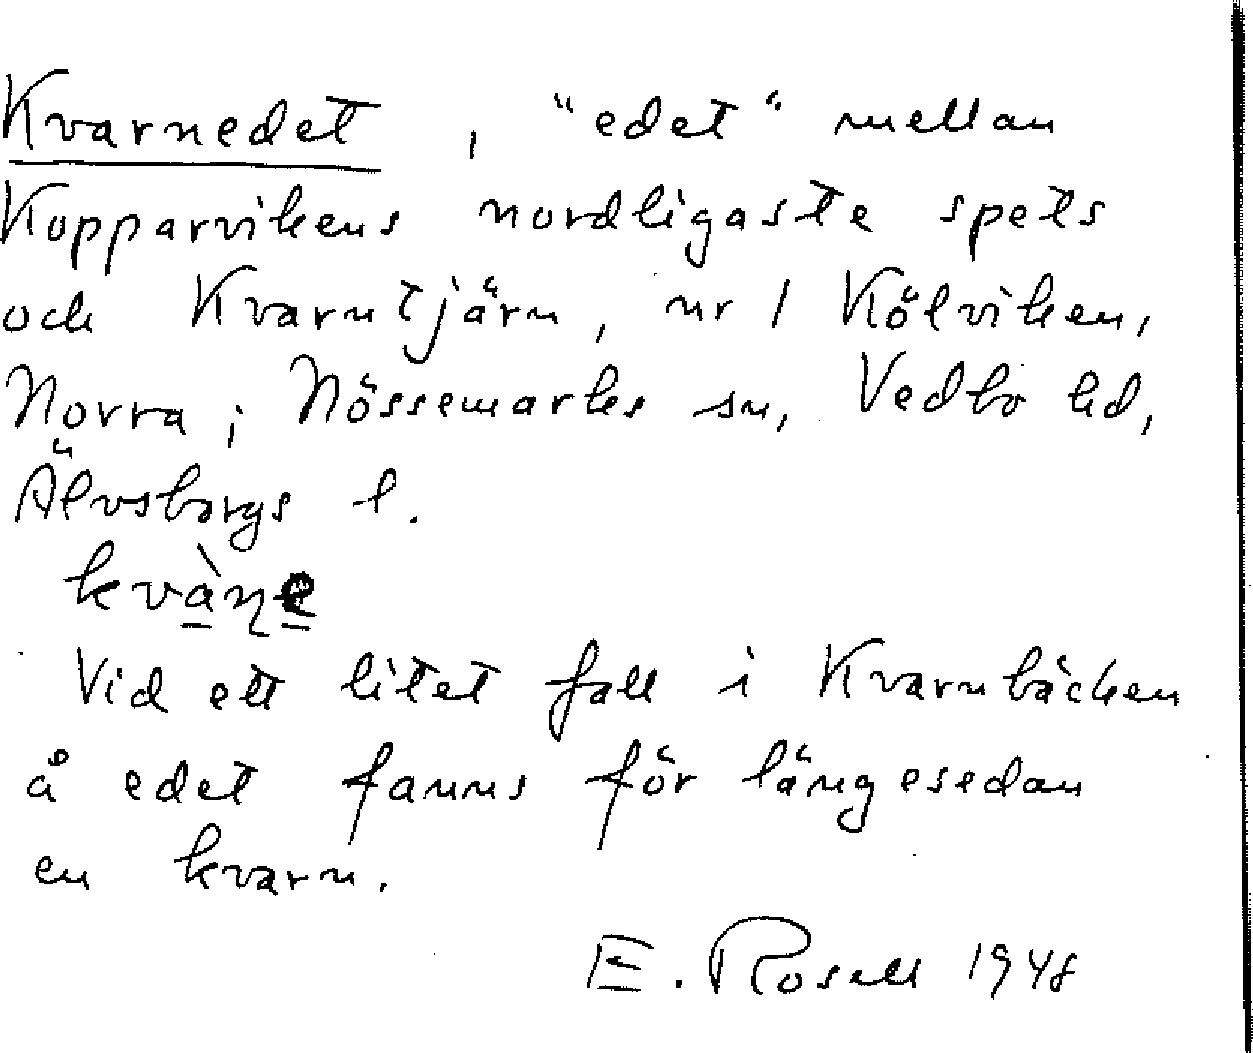 Kvarnedet, "edet" mellan
Kopparvikens nordligaste spets
och Kvarntjärn, nr 1 Kölviken,
Norra; Nössemarks sn, Vedbo hd,
Älvsborgs l.
Vid ett litet fall i Kvarnbäcken
å edet fanns för längesedan
en kvarn.
E. Rosell 1948